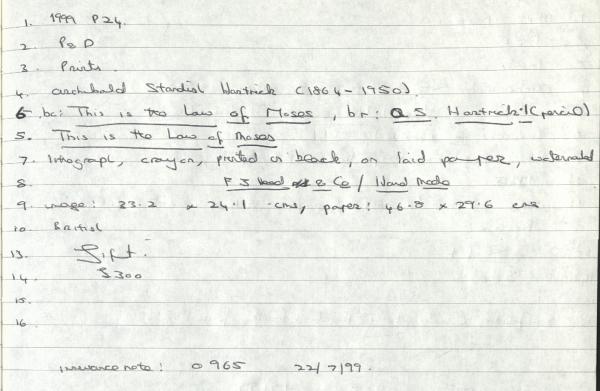 1. 1999 P24.
2. P & D
3. Prints.
4. Archibald Standish Hartrick (1864-1950).
6. bc: This is the Law of Moses, br: A S. Hartrick 1 (pencil)
5. This is the Law of Moses
7. lithograph, crayon, printed in black, on laid paper, watermarked
8. F J Head & Co / Hand Made
9. image: 33.2 x 24.1 cms, paper: 46.8 x 29.6 cms
10. British
13. Gift.
14. £300
15.
16.
insurance note: 0965 22/7/99.